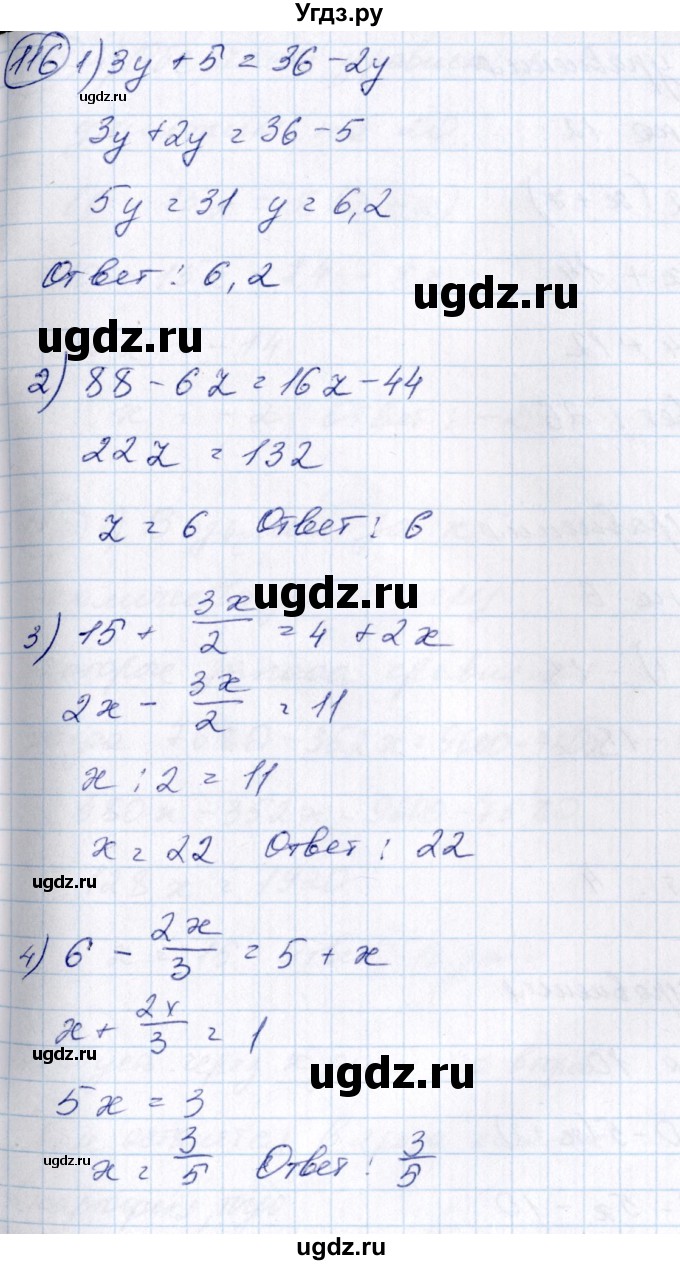 Угдз.ру
116 1) 3y + 5 = 36 - 2y
ugdz.ru
3y + 2y = 36 - 5
5y = 31 y = 6,2
Ответ: 6,2
ugdz.ru
ugdz.ru
2) 88 - 6z = 16z - 44
22z = 132
z = 6 Ответ: 6
ugdz.ru
3) 15 + 3x/2 = 4 + 2x
2x - 3x/2 = 11
x : 2 = 11
x = 22 Ответ: 22
ugdz.ru
4) 6 - 2x/3 = 5 + x
x + 2x/3 = 1
ugdz.ru
5x = 3
ugdz.ru
x = 3/5 Ответ: 3/5
ugdz.ru